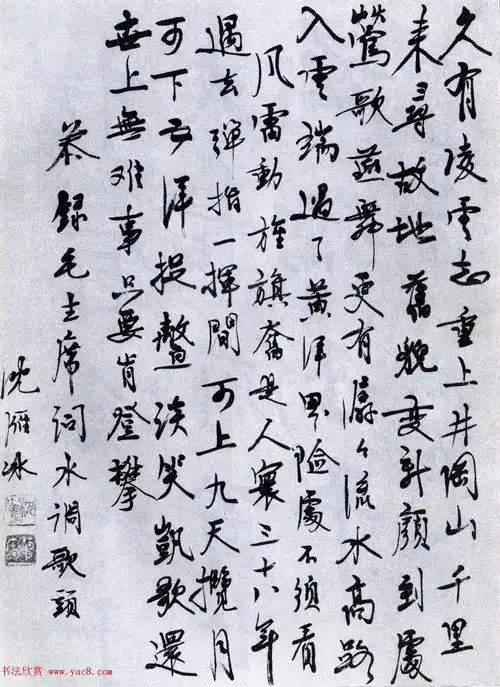 久有凌雲志重上井岡山千里
来尋故地舊貌变新顔到處
鶯歌燕舞更有潺々流水高路
入雲端過了黄洋界險處不須看
風雷動旌旗奮是人寰三十八年
過去彈指一揮間可上九天攬月
可下五洋捉鳖談笑凱歌還
世上無难事只要肯登攀
恭録毛主席詞水調歌頭
沈雁冰
书法欣赏 www.yac8.com